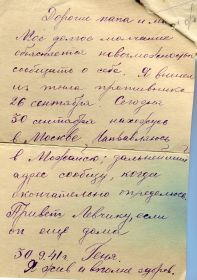 Дорогие папа и мама!
Мое долгое молчание
объясняется невозможностью
сообщить о себе. Я вышел
из тыла противника
26 сентября. Сегодня
30 сентября нахожусь
в Москве. Направляюсь
в Можайск; дальнейший
адрес сообщу, когда
окончательно определюсь.
Привет Левчику, если
он еще дома
30.9.41г.
Я жив и вполне здоров.